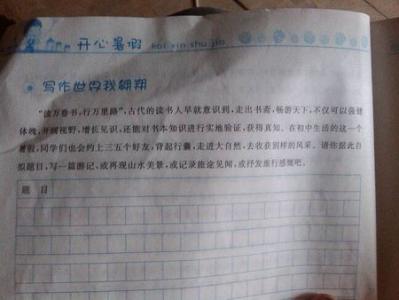 开心暑假 kai xin shu jia
写作世界我翱翔
“读万卷书,行万里路”,古代的读书人早就意识到,走出书斋,畅游天下,不仅可以强健
体魄,开阔视野,增长见识,还能对书本知识进行实地验证,获得真知。在初中生活的这一个
暑假,同学们也会约上三五个好友,背起行囊,走进大自然,去收获别样的风采。请你据此自
拟题目,写一篇游记,或再现山水美景,或记录旅途见闻,或抒发旅行感慨吧。
题目